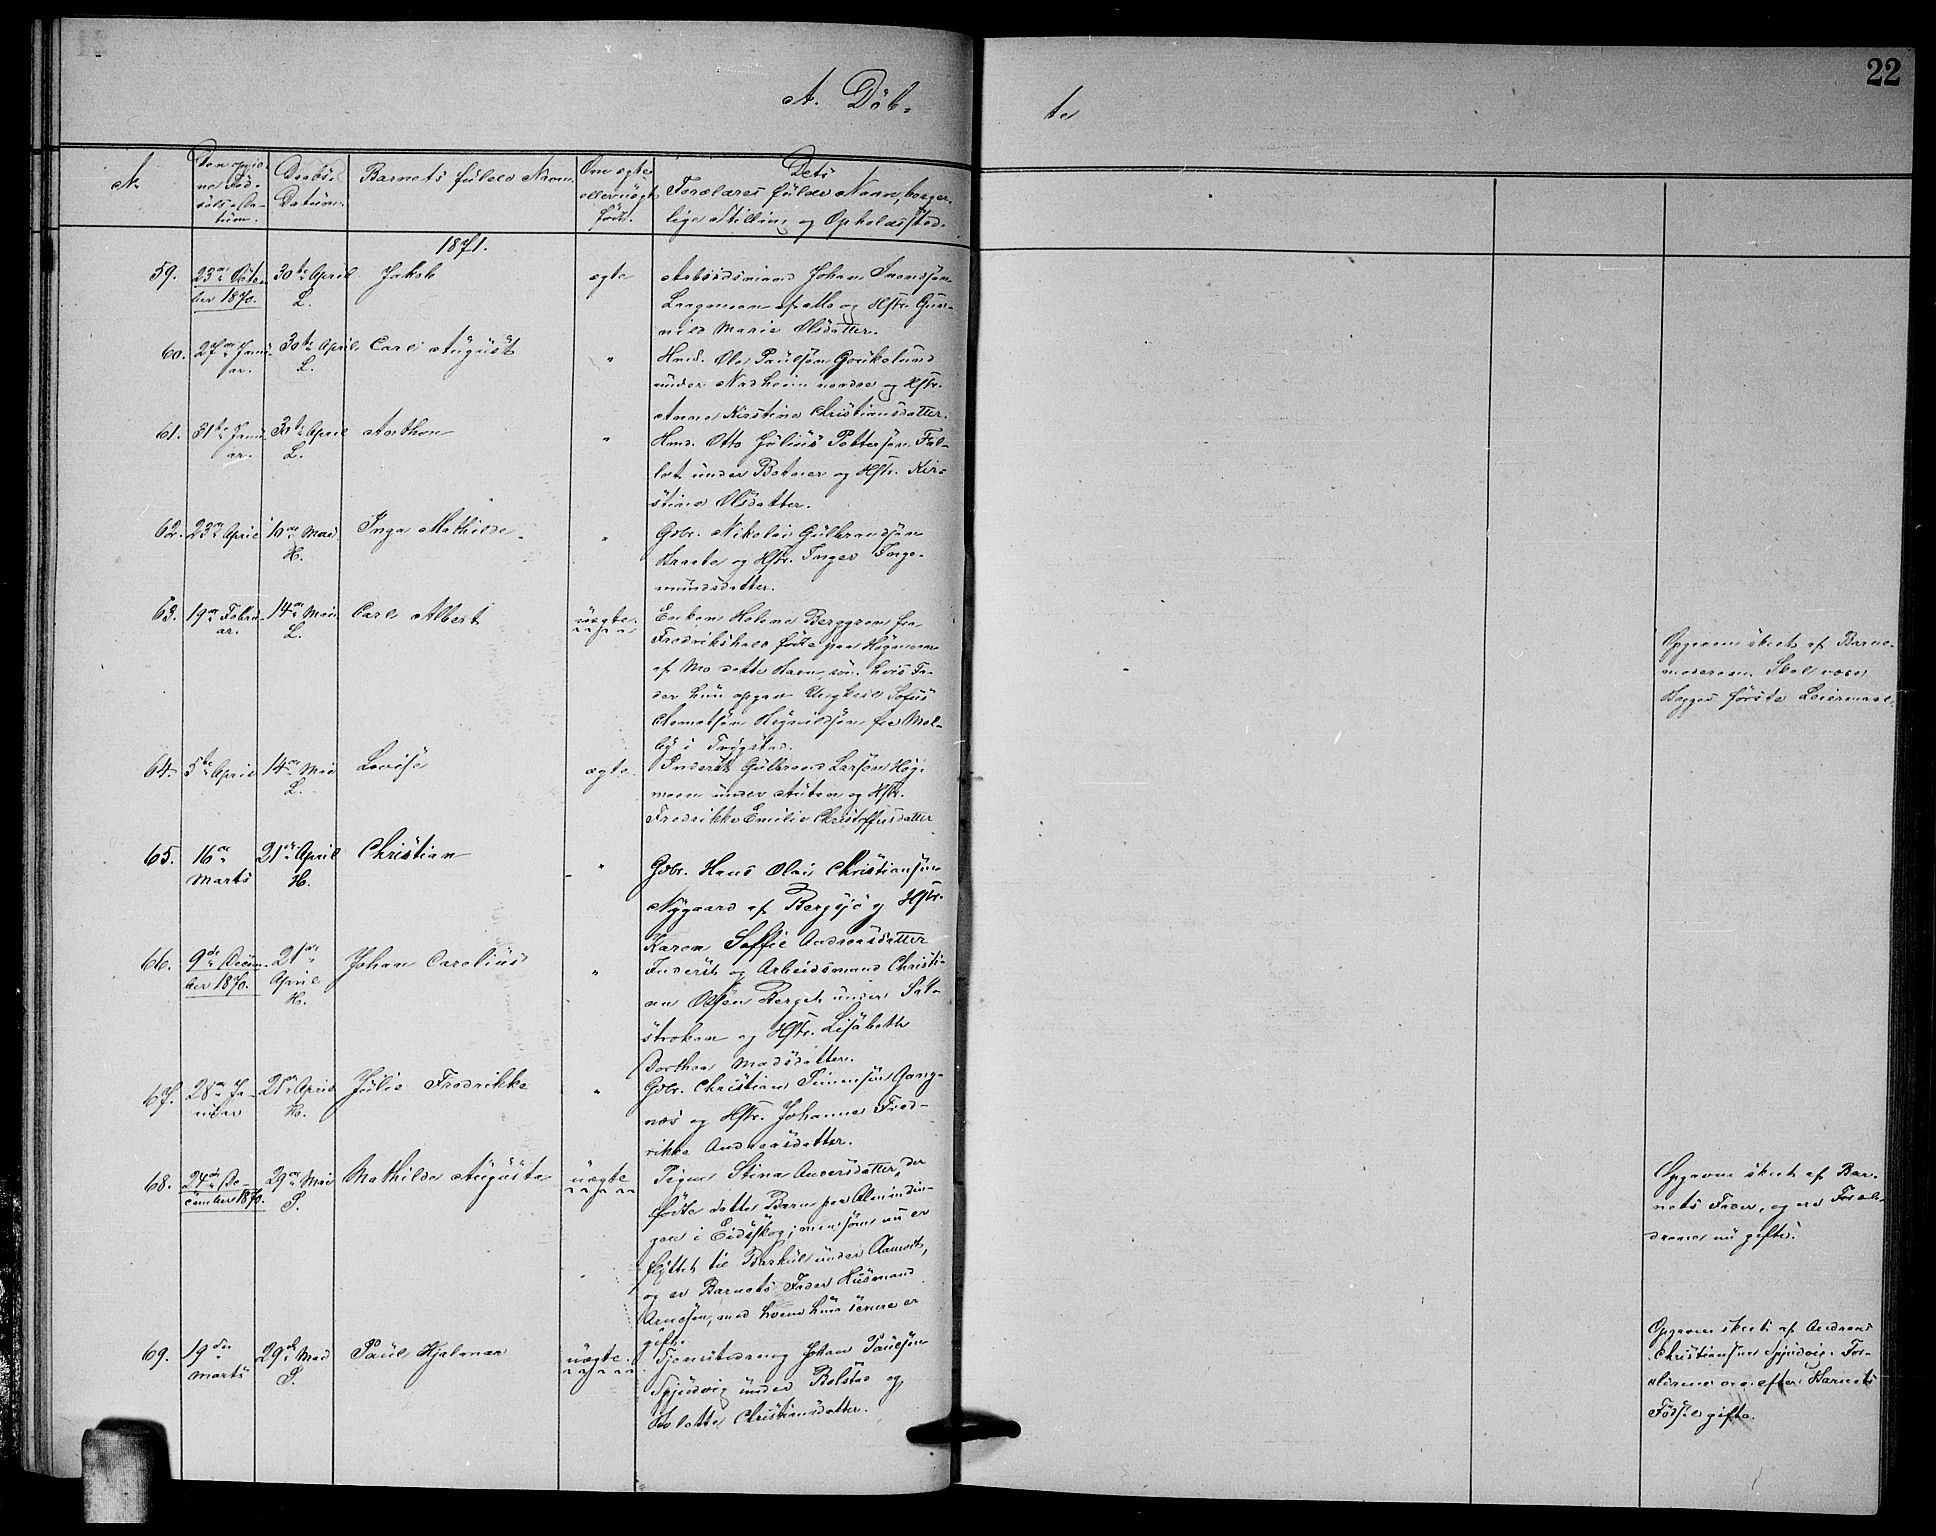 22
A. Døb-
te
№
Den opgiv-
ne Fød-
sels-Da-
tum.
Daabs-
Datum.
Barnets fulde Navn.
Om ægte
eller uægte
født.
Dets
Forældres fulde Navn, borger-
lige Stilling og Opholdssted.
1871.
59.
23de Octo-
ber 1870.
30te April
L.
Jakob
ægte
Arbeidsmand Johan Svendsøn
Laagmoen af Mo og Hstr. Gun-
nild Marie Olsdatter.
60.
27de Janu-
ar.
30te April
L.
Carl August
"
Hmd. Ole Paulsøn
under nordre og Hstr.
Anne Kirstine Christiansdatter.
61.
31te Janu-
ar.
30te April
L.
Anthon
"
Hmd. Otto Julius Pettersøn
under Botner og Hstr. Kir-
stine Olsdatter.
62.
23de April
10de Mai
H.
Inga Mathilde.
"
Gbr. Nikolai Gulbrandsøn
Braate og Hstr. Inger Inge-
mundsdatter.
63.
19de Febru-
ar.
14de Mai
L.
Carl Albert
uægte.
Enken Helene Berggren fra
Fredrikshald fødte paa Høgmoen
af Mo dette Barn, som hvis Fa-
der hun opgav Ungkarl Sofus
fra Mel-
by i Trygstad.
Opgaven skeet af Barne-
moderen. Skal være
Begges første Leiermaal.
64.
5te April
14de Mai
L.
Lovise
ægte.
Inderst Gulbrand Larsøn Høg-
moen under Auten og Hstr.
Fredrikke Emilie Christoffersdatter
65.
16de
Marts
21de April
H.
Christian
"
Gbr. Hans Olai Christiansøn
Nygaard af Bergsjø og Hstr.
Karen Soffie Andreasdatter
66.
9de Decem-
ber 1870.
21de
April
H.
Johan Carelius
"
Inderst og Arbeidsmand Christi-
an Olsøn Berget under Sæt-
og Hstr. Lisabeth
Dorthea Madsdatter.
67.
28de Ja-
nuar
21de April
H.
Julie Fredrikke
"
Gbr. Christian Simensøn Gang-
næs og Hstr. Johanne Fred-
rikke Andreasdatter.
68.
24de De-
cember 1870.
29de Mai
S.
Mathilde Augusta
uægte
Pigen Stina Andersdatter, der
fødte dette Barn paa Almindin-
gen i Eidsskog; men som nu er
flyttet til under Aamodt,
og er Barnets Fader Husmand
Arnesøn, med hvem hun senere er
gift.
Opgaven skeet af Bar-
nets Fader, og ere Foræl-
drene nu gifte.
69.
19de
Marts
29de Mai
S.
Paul Hjalmar
uægte.
Tjenestedreng Johan Paulsøn
Spjudvig under Bolstad og
Lolotte Christiansdatter.
Opgaven skeet af Andreas
Christiansen Spjudvig. For-
ældrene ere efter Barnets
Fødsel gifte.